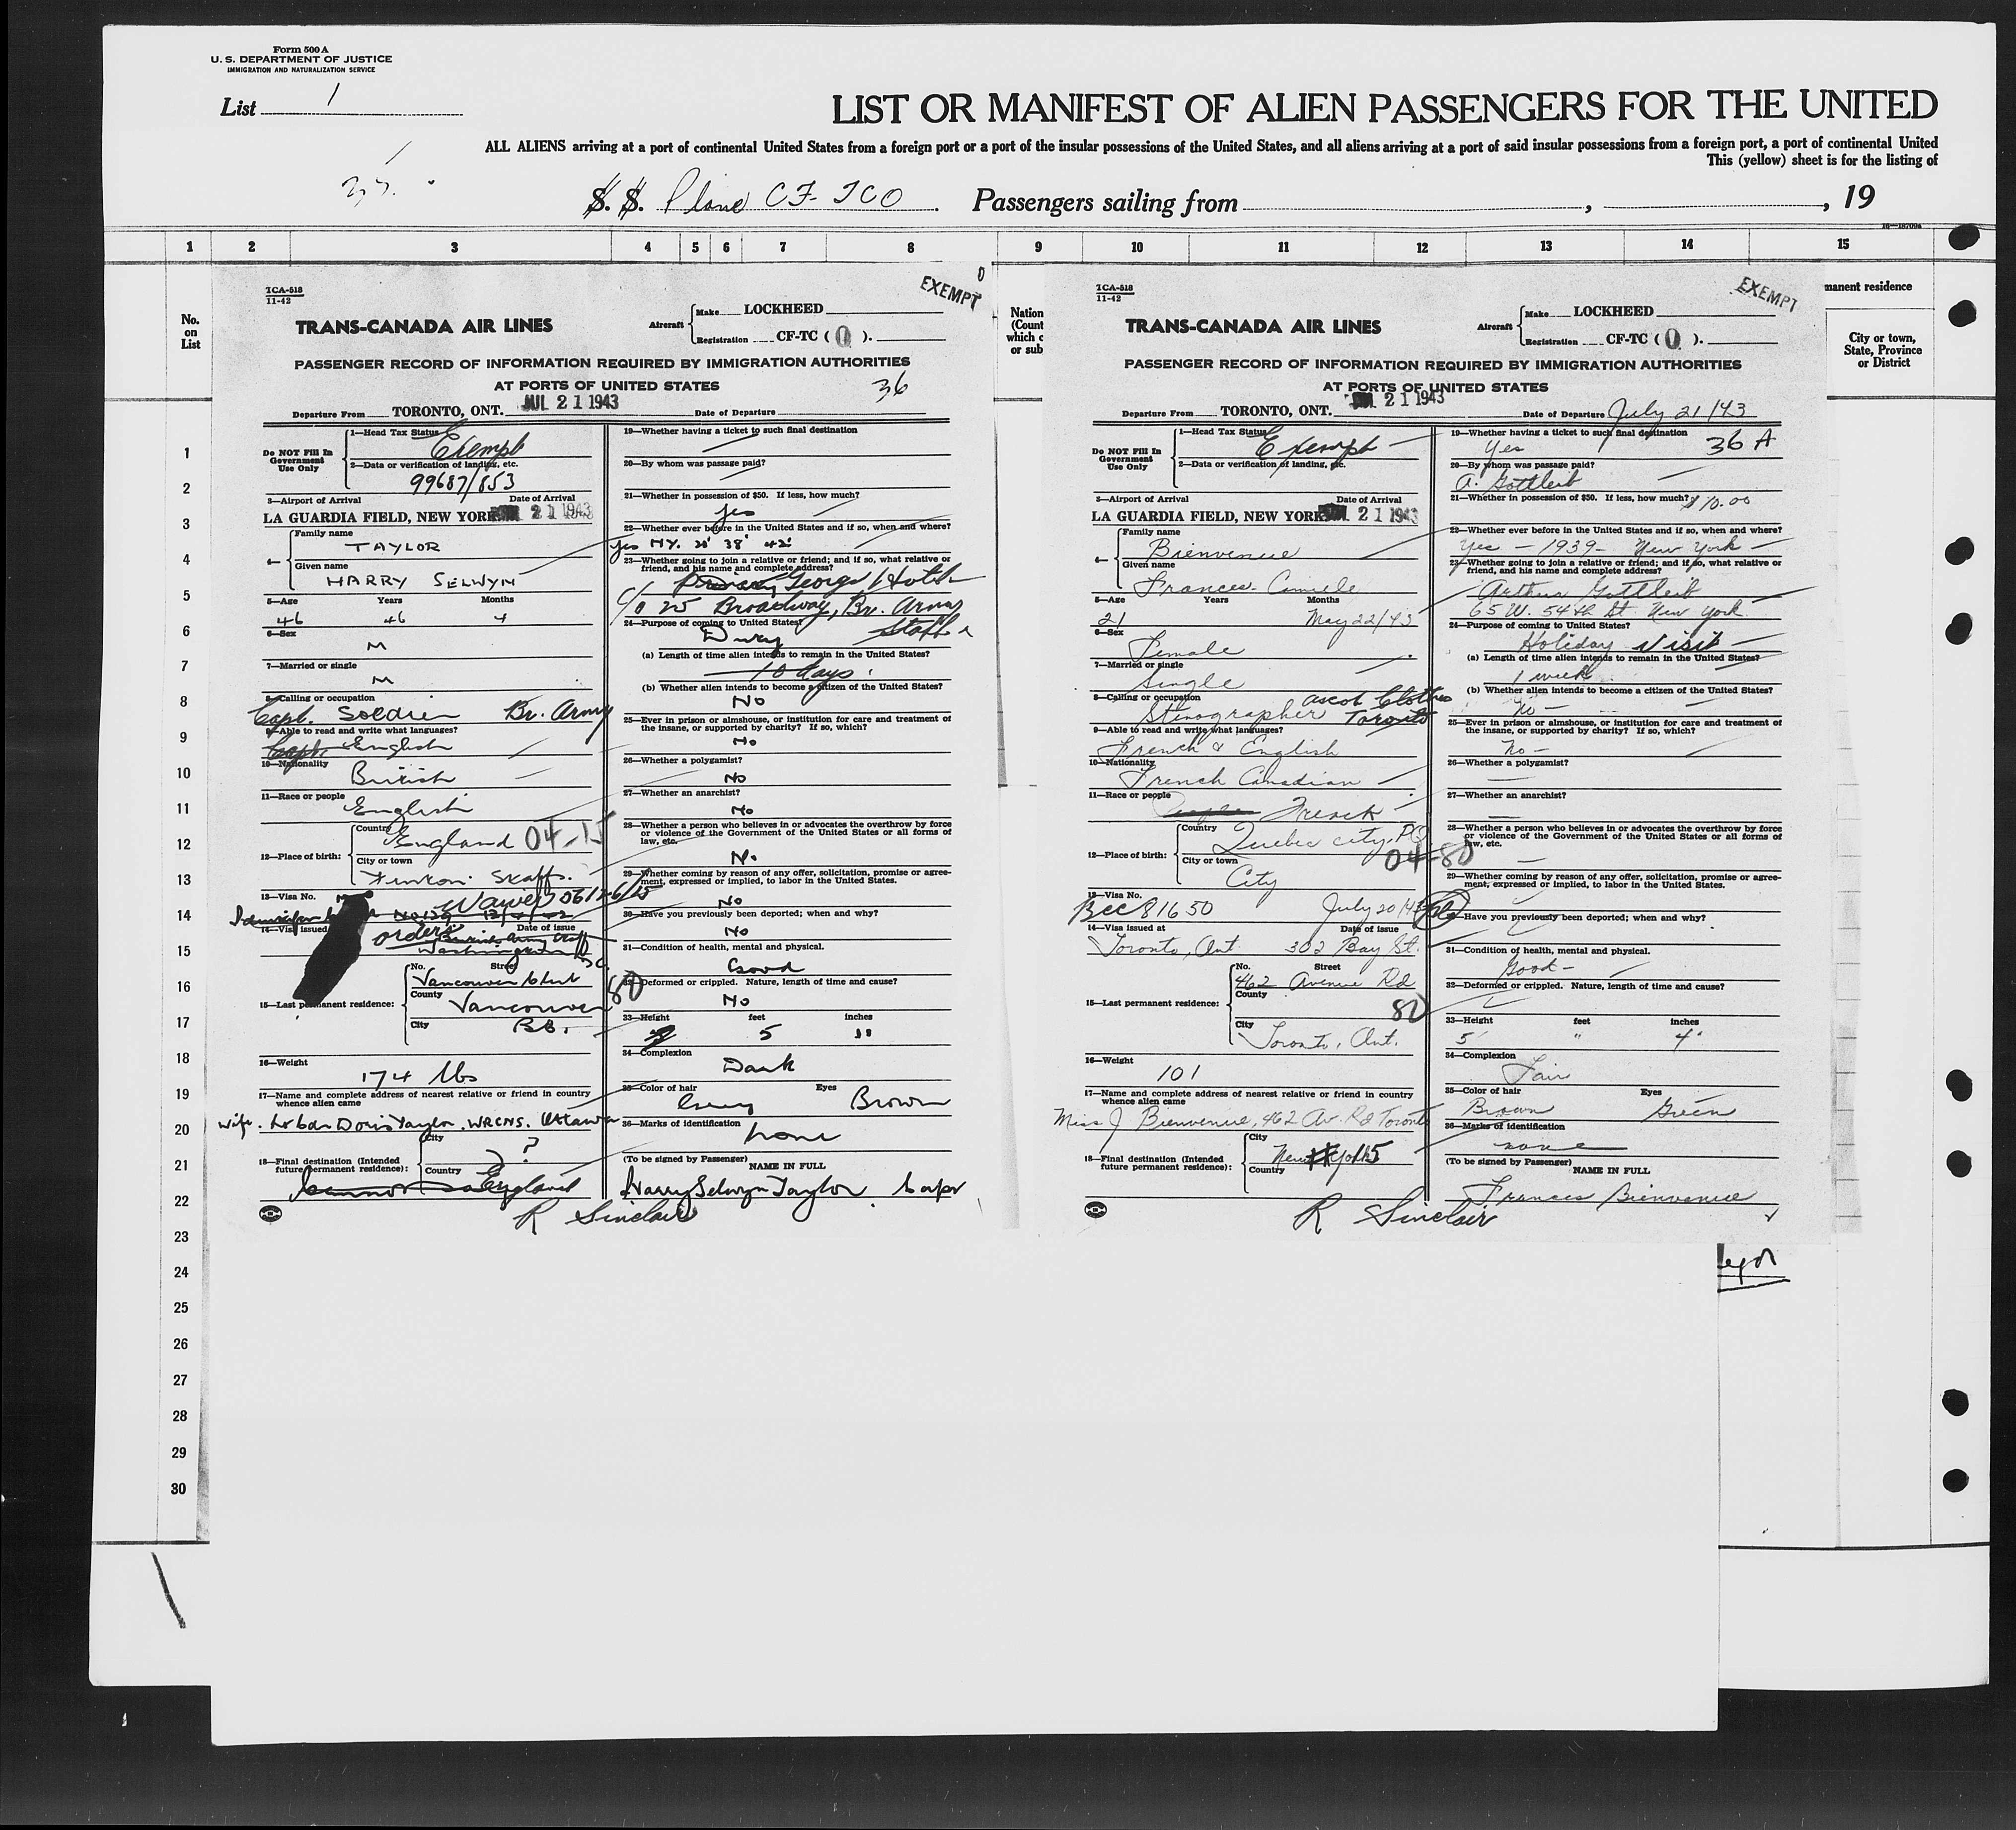 Form 500 A
U. S. DEPARTMENT OF JUSTICE
IMMIGRATION AND NATURALIZATION SERVICE
List 1
LIST OR MANIFEST OF ALIEN PASSENGERS FOR THE UNITED
ALL ALIENS arriving at a port of continental United States from a foreign port or a port of the insular possessions of the United States, and all aliens arriving at a port of said insular possessions from a foreign port, a port of continental United
This (yellow) sheet is for the listing of
S. S. Plane CF-TCO Passengers sailing from , , 19
1 2 3 4 5 6 7 8 9 10 11 12 13 14 15
No. on List
Nation
(Count
which c
or sub
manent residence
City or town, State, Province or District
TCA-518
11-42
EXEMPT
TRANS-CANADA AIR LINES
Aircraft Make LOCKHEED
Registration CF-TC ( O ).
PASSENGER RECORD OF INFORMATION REQUIRED BY IMMIGRATION AUTHORITIES
AT PORTS OF UNITED STATES
36
Departure From TORONTO, ONT. JUL 21 1943 Date of Departure
Do NOT Fill In Government Use Only
1—Head Tax Status Exempt
2—Data or verification of landing, etc.
99687/853
3—Airport of Arrival Date of Arrival
LA GUARDIA FIELD, NEW YORK JUL 21 1943
4— Family name
TAYLOR
Given name
HARRY SELWYN
5—Age Years Months
46 46 4
6—Sex
M
7—Married or single
M
8—Calling or occupation
Capt. Soldier Br. Army
9—Able to read and write what languages?
English
10—Nationality
British
11—Race or people
English
12—Place of birth: Country England 04-15
City or town
Fenton Staffs.
13—Visa No. Waiver 0612-6/15
14—Visa issued Date of issue
orders
Washington
15—Last permanent residence: No. Street
Vancouver Club
County
Vancouver 80
City B.C.
16—Weight
174 lbs
17—Name and complete address of nearest relative or friend in country whence alien came
wife. Doris Taylor. WRCNS. Ottawa
18—Final destination (Intended future permanent residence): City ?
Country
England
19—Whether having a ticket to such final destination
20—By whom was passage paid?
21—Whether in possession of $50. If less, how much?
yes
22—Whether ever before in the United States and if so, when and where?
yes NY. 38' 42'
23—Whether going to join a relative or friend; and if so, what relative or friend, and his name and complete address?
George Hotel
c/o 25 Broadway, Br. Army
Staff
24—Purpose of coming to United States?
Duty
(a) Length of time alien intends to remain in the United States?
10 days
(b) Whether alien intends to become a citizen of the United States?
No
25—Ever in prison or almshouse, or institution for care and treatment of the insane, or supported by charity? If so, which?
No
26—Whether a polygamist?
No
27—Whether an anarchist?
No
28—Whether a person who believes in or advocates the overthrow by force or violence of the Government of the United States or all forms of law, etc.
No
29—Whether coming by reason of any offer, solicitation, promise or agreement, expressed or implied, to labor in the United States.
No
30—Have you previously been deported; when and why?
No
31—Condition of health, mental and physical.
Good
32—Deformed or crippled. Nature, length of time and cause?
No
33—Height feet inches
5 11
34—Complexion
Dark
35—Color of hair Eyes
Grey Brown
36—Marks of identification
none
(To be signed by Passenger) NAME IN FULL
Harry Selwyn Taylor Capt
R Sinclair
TCA-518
11-42
EXEMPT
TRANS-CANADA AIR LINES
Aircraft Make LOCKHEED
Registration CF-TC ( O ).
PASSENGER RECORD OF INFORMATION REQUIRED BY IMMIGRATION AUTHORITIES
AT PORTS OF UNITED STATES
Departure From TORONTO, ONT. JUL 21 1943 Date of Departure July 21/43
Do NOT Fill In Government Use Only
1—Head Tax Status Exempt
2—Data or verification of landing, etc.
3—Airport of Arrival Date of Arrival
LA GUARDIA FIELD, NEW YORK JUL 21 1943
4— Family name
Bienvenue
Given name
Frances Camile
5—Age Years Months
21 May 22/43
6—Sex
Female
7—Married or single
Single
8—Calling or occupation Ascot Clothes
Stenographer Toronto
9—Able to read and write what languages?
French & English
10—Nationality
French Canadian
11—Race or people
French
12—Place of birth: Country
Quebec City, PQ
04-80
City or town
City
13—Visa No.
BCC 81650 July 20/43
14—Visa issued at Date of issue
Toronto, Ont. 302 Bay St.
15—Last permanent residence: No. Street
462 Avenue Rd
County
80
City
Toronto, Ont.
16—Weight
101
17—Name and complete address of nearest relative or friend in country whence alien came
Miss J Bienvenue, 462 Av. Rd Toronto
18—Final destination (Intended future permanent residence): City
New York
Country
19—Whether having a ticket to such final destination
Yes 36 A
20—By whom was passage paid?
A. Gottleib
21—Whether in possession of $50. If less, how much? $10.00
22—Whether ever before in the United States and if so, when and where?
Yes — 1939 — New York
23—Whether going to join a relative or friend; and if so, what relative or friend, and his name and complete address?
Arthur Gottleib
65 W. 54th St. New York.
24—Purpose of coming to United States?
Holiday Visit
(a) Length of time alien intends to remain in the United States?
1 week
(b) Whether alien intends to become a citizen of the United States?
No —
25—Ever in prison or almshouse, or institution for care and treatment of the insane, or supported by charity? If so, which?
No —
26—Whether a polygamist?
27—Whether an anarchist?
28—Whether a person who believes in or advocates the overthrow by force or violence of the Government of the United States or all forms of law, etc.
29—Whether coming by reason of any offer, solicitation, promise or agreement, expressed or implied, to labor in the United States.
Have you previously been deported; when and why?
31—Condition of health, mental and physical.
Good —
32—Deformed or crippled. Nature, length of time and cause?
33—Height feet inches
5' " 4"
34—Complexion
Fair
35—Color of hair Eyes
Brown Green
36—Marks of identification
none
(To be signed by Passenger) NAME IN FULL
Frances Bienvenue
R Sinclair
1
2
3
4
5
6
7
8
9
10
11
12
13
14
15
16
17
18
19
20
21
22
23
24
25
26
27
28
29
30